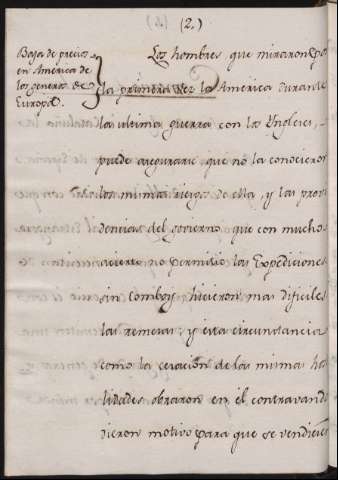 (2.)
Baja de precios
en America de
los generos de
Europa.
Los hombres que miraron por
la primera vez la America durante
la ultima guerra con los Yngleses,
puede asegurarse que no la conocieron
los mismos de ella, y las provi
dencias del govierno que con mucho
acierto no permitio las Expediciones
sin Comboy hicieron mas dificiles
las remesas, y esta circunstancia
como la cesacion de las mismas hos
tilidades obraron en el contravando
dieron motivo para que se vendiesen